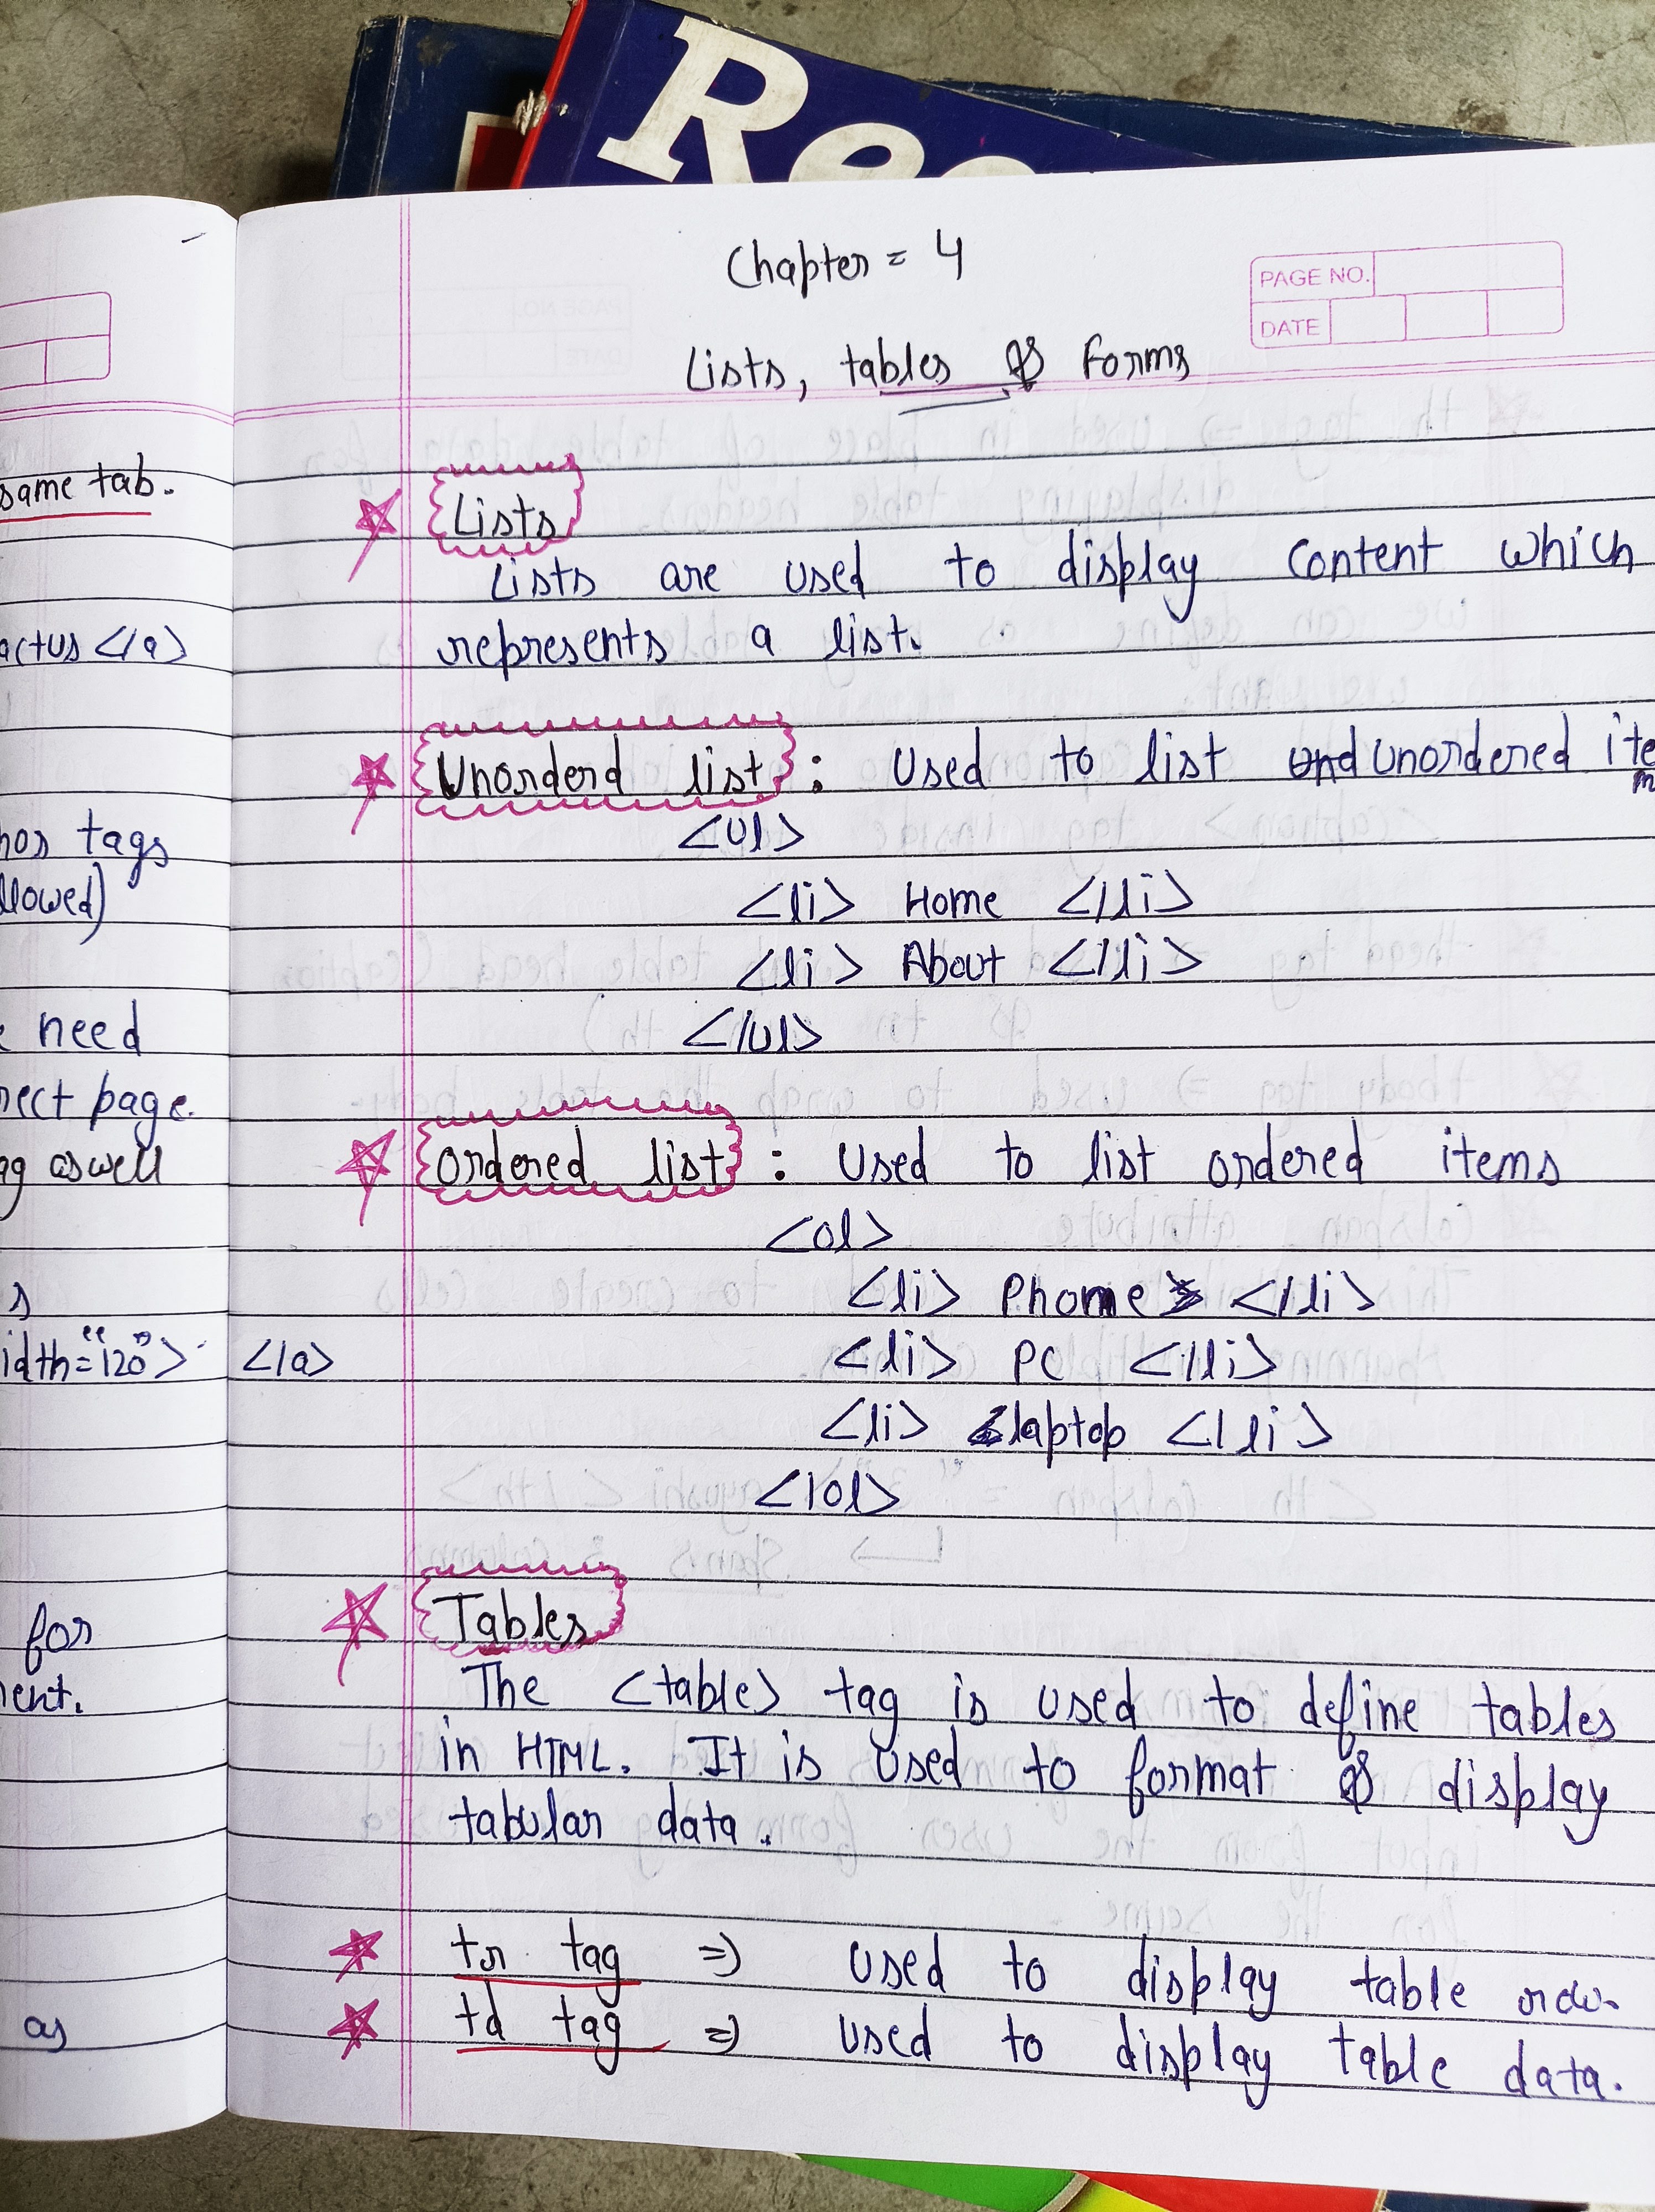 Re
Chapter = 4
PAGE NO.
DATE
Lists, tables & Forms
same tab.
actus </a>
tags
llowed)
need
rect page.
as well
s
idth="120"> </a>
for
ment.
as
Lists
Lists are used to display content which
represents a list.
Unorderd list : Used to list unordered item
<ul>
<li> Home </li>
<li> About </li>
</ul>
Ordered list : Used to list ordered items
<ol>
<li> Phome </li>
<li> PC </li>
<li> laptop </li>
</ol>
Tables
The <table> tag is used to define tables
in HTML. It is used to format & display
tabular data.
tr tag => used to display table row.
td tag => used to display table data.